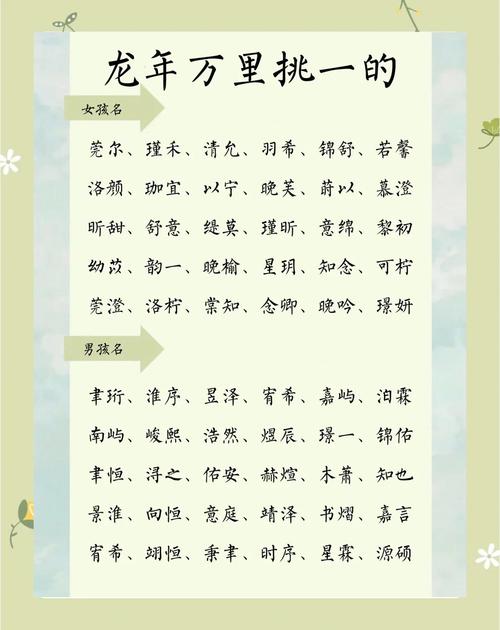 龙年万里挑一的
女孩名
莞尔、瑾禾、清允、羽希、锦舒、若馨
洛颜、珈宜、以宁、晚芙、蔚以、慕澄
昕甜、舒意、缇莫、瑾昕、意绵、黎初
幼苡、韵一、晚榆、星玥、知念、可柠
莞澄、洛柠、棠知、念卿、晚吟、璟妍
男孩名
聿珩、淮序、昱泽、宥希、嘉屿、泊霖
南屿、峻熙、浩然、煜辰、璟一、锦佑
聿恒、浔之、佑安、赫煊、木萧、知也
景淮、向恒、意庭、靖泽、书熠、嘉言
宥希、翊恒、秉聿、时序、星霖、源硕